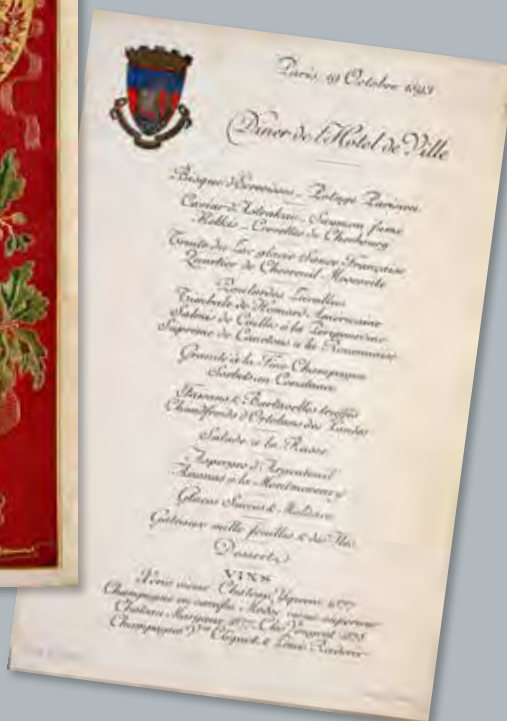 Paris, 19 Octobre 1893
Dîner de l'Hôtel de Ville
Bisque d'Ecrevisses _ Potage Parisien
Caviar d'Astrakan _ Saumon fumé
Melons _ Crevettes de Cherbourg
Truite du Lac glacée Sauce Française
Quartier de Chevreuil Moscovite
Poulardes
Timbale de Homard Américaine
Salmis de Cailles à la Périgourdine
Suprême de Canetons à la Rouennaise
Granité à la Fine Champagne
Sorbets au
Faisans & Bartavelles truffés
Chaudfroids d'Ortolans des Landes
Salade à la Russe
Asperges d'Argenteuil
Ananas à la Montmorency
Glaces Succès &
Gâteaux mille feuilles & des Iles
Desserts
VINS
Xérès vieux Château Yquem
Champagne en carafes Madère vieux supérieur
Château Margaux Clos Vougeot
Champagne Vve Cliquot & Louis Rœderer